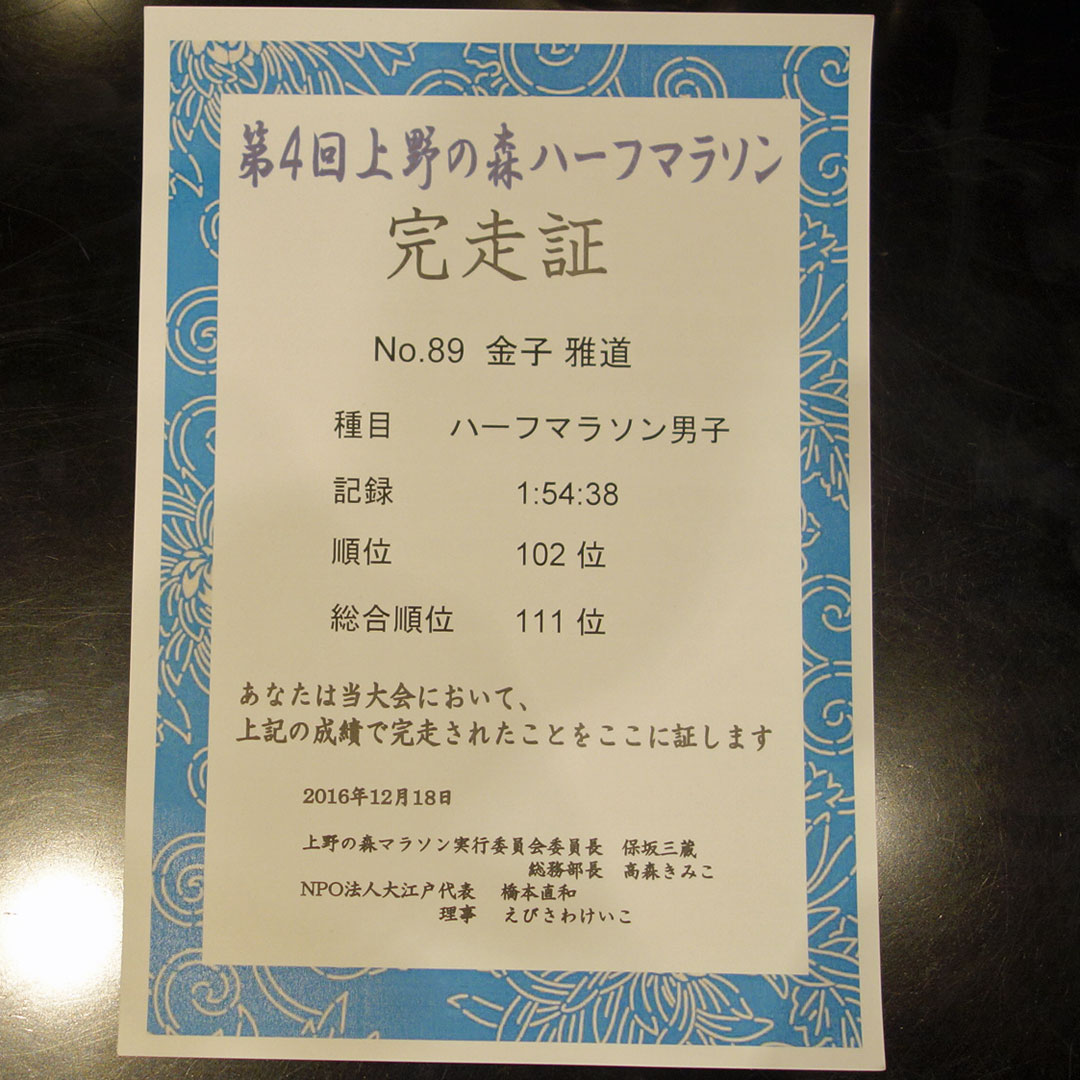 第4回上野の森ハーフマラソン
完走証
No.89 金子 雅道
種目 ハーフマラソン男子
記録 1:54:38
順位 102 位
総合順位 111 位
あなたは当大会において、
上記の成績で完走されたことをここに証します
2016年12月18日
上野の森マラソン実行委員会委員長 保坂三蔵
総務部長 高森きみこ
NPO法人大江戸代表 橋本直和
理事 えびさわけいこ